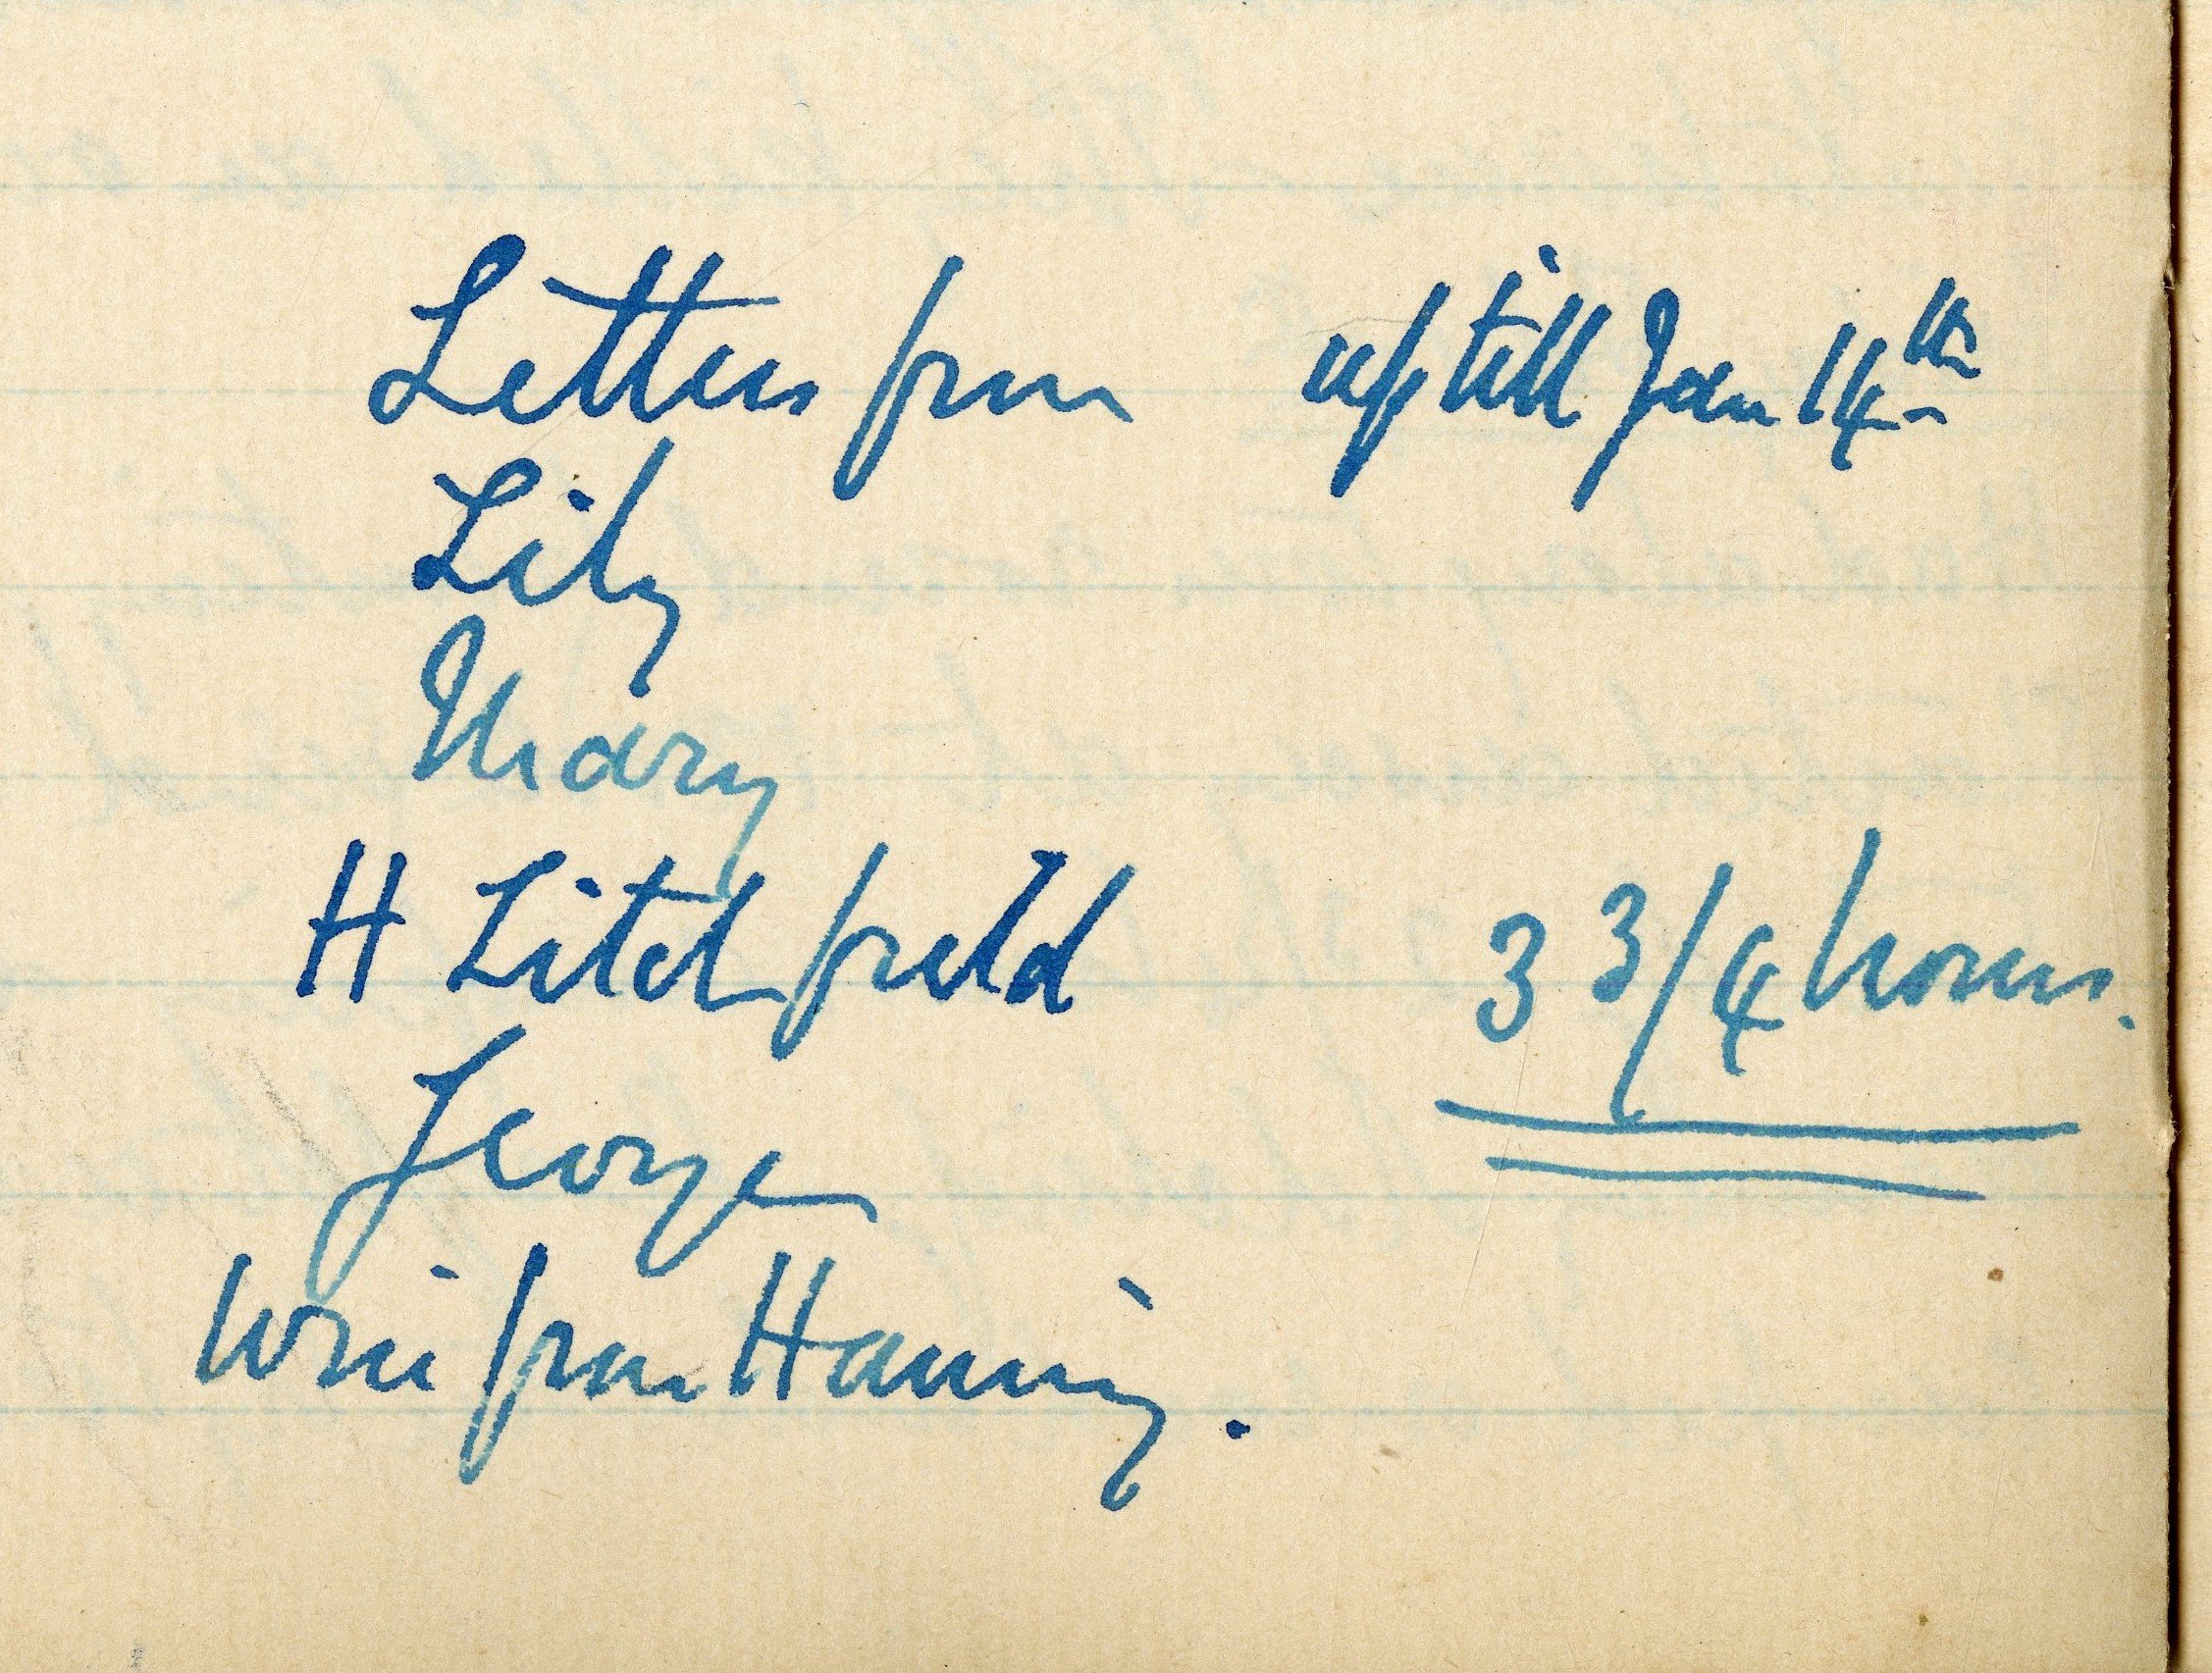 Letters from up till Jan 14th
Lily
Mary
H Litchfield 3 3/4 hours.
George
Wire from Hanning.